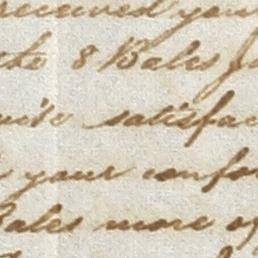 received your
the 8 Bales
satisfac
your confor
Bales more of